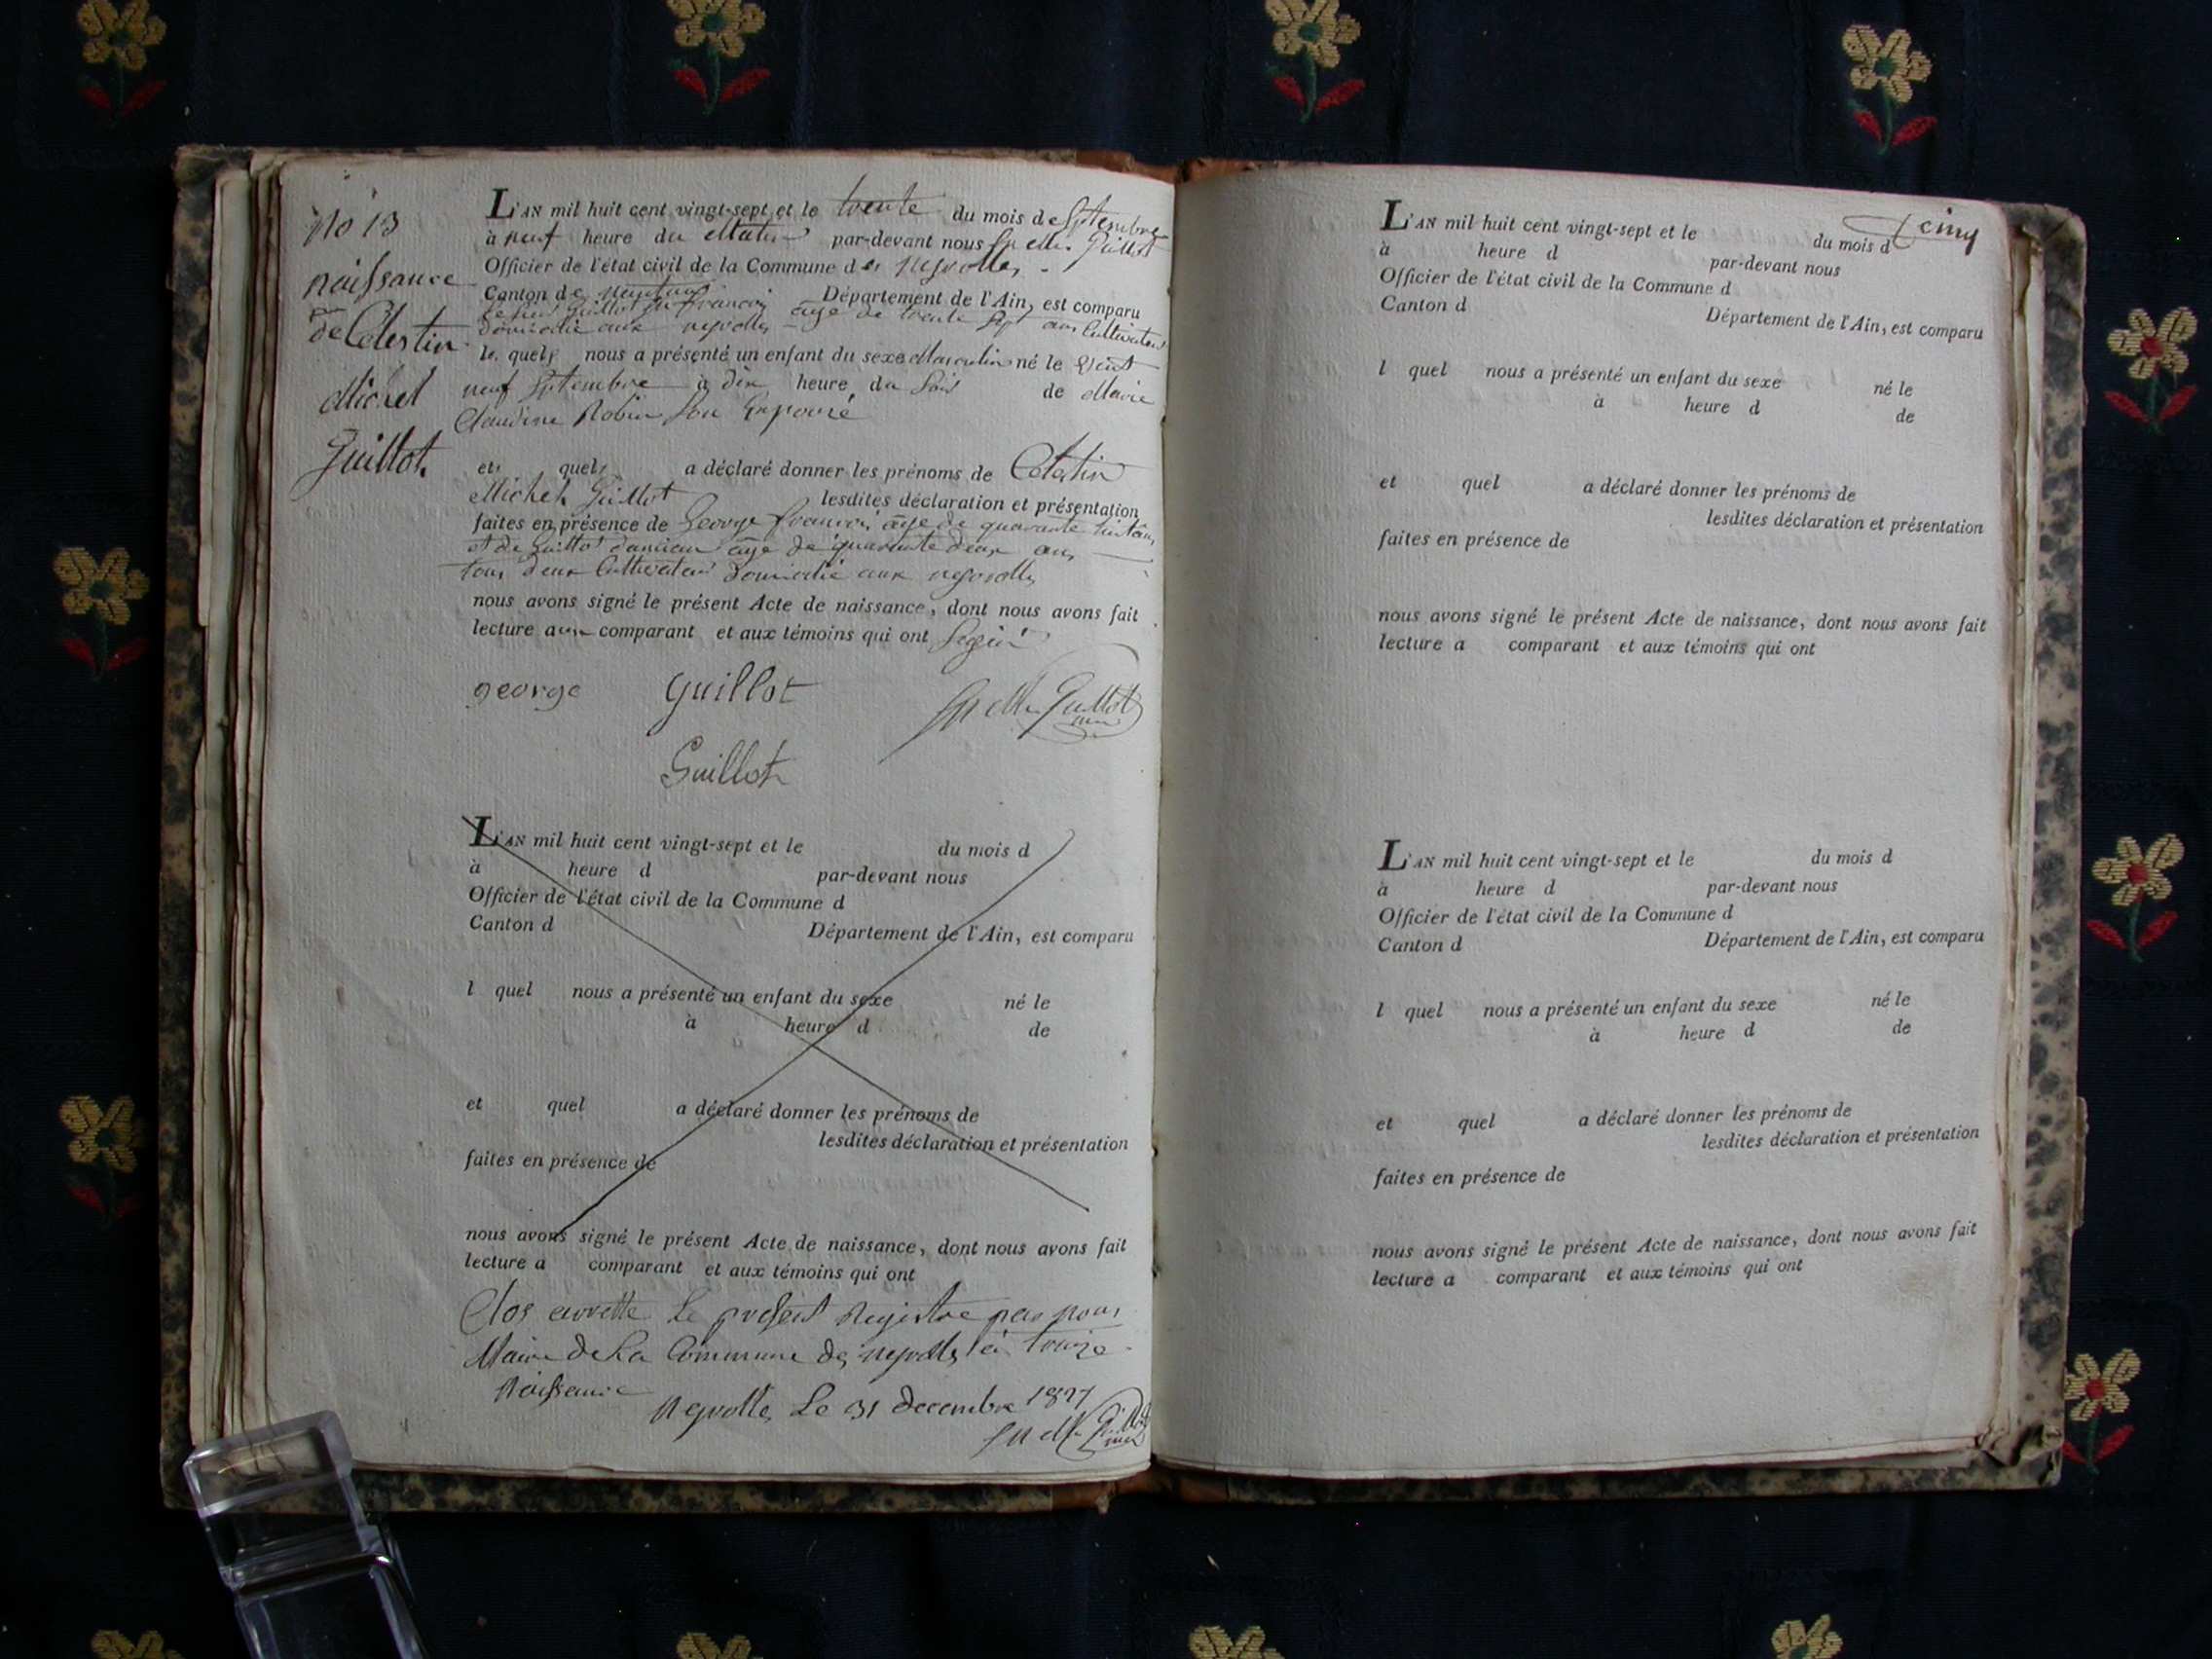 No 13
naissance
de Celestin
Michel
Guillot
L'AN mil huit cent vingt-sept et le trente du mois de Septembre
à neuf heure du Matin par-devant nous Guillot
Officier de l'état civil de la Commune des neyrolles
Canton de nantua Département de l'Ain, est comparu
Guillot françois âge de trente Sept ans Cultivateur
domicilié aux neyrolles
le quel nous a présenté un enfant du sexe Masculin né le Vient
neuf Septembre à dix heure du Soir de Marie
Claudine Robin Son
et quel a déclaré donner les prénoms de Celestin
Michel Guillot lesdites déclaration et présentation
faites en présence de George françois âge de quarante
et de Guillot âge de quarante deux ans
tous deux Cultivateur domicilié aux neyrolles
nous avons signé le présent Acte de naissance, dont nous avons fait
lecture aux comparant et aux témoins qui ont
george Guillot Guillot
Guillot
L'AN mil huit cent vingt-sept et le du mois d
à heure d par-devant nous
Officier de l'état civil de la Commune d
Canton d Département de l'Ain, est comparu
l quel nous a présenté un enfant du sexe né le
à heure d de
et quel a déclaré donner les prénoms de
lesdites déclaration et présentation
faites en présence de
nous avons signé le présent Acte de naissance, dont nous avons fait
lecture a comparant et aux témoins qui ont
Clos le présent Registre par nous
Maire de La Commune des neyrolles à traize
Naissance
Neyrolles Le 31 decembre 1827
Guillot
cinq
L'AN mil huit cent vingt-sept et le du mois d
à heure d par-devant nous
Officier de l'état civil de la Commune d
Canton d Département de l'Ain, est comparu
l quel nous a présenté un enfant du sexe né le
à heure d de
et quel a déclaré donner les prénoms de
lesdites déclaration et présentation
faites en présence de
nous avons signé le présent Acte de naissance, dont nous avons fait
lecture a comparant et aux témoins qui ont
L'AN mil huit cent vingt-sept et le du mois d
à heure d par-devant nous
Officier de l'état civil de la Commune d
Canton d Département de l'Ain, est comparu
l quel nous a présenté un enfant du sexe né le
à heure d de
et quel a déclaré donner les prénoms de
lesdites déclaration et présentation
faites en présence de
nous avons signé le présent Acte de naissance, dont nous avons fait
lecture a comparant et aux témoins qui ont